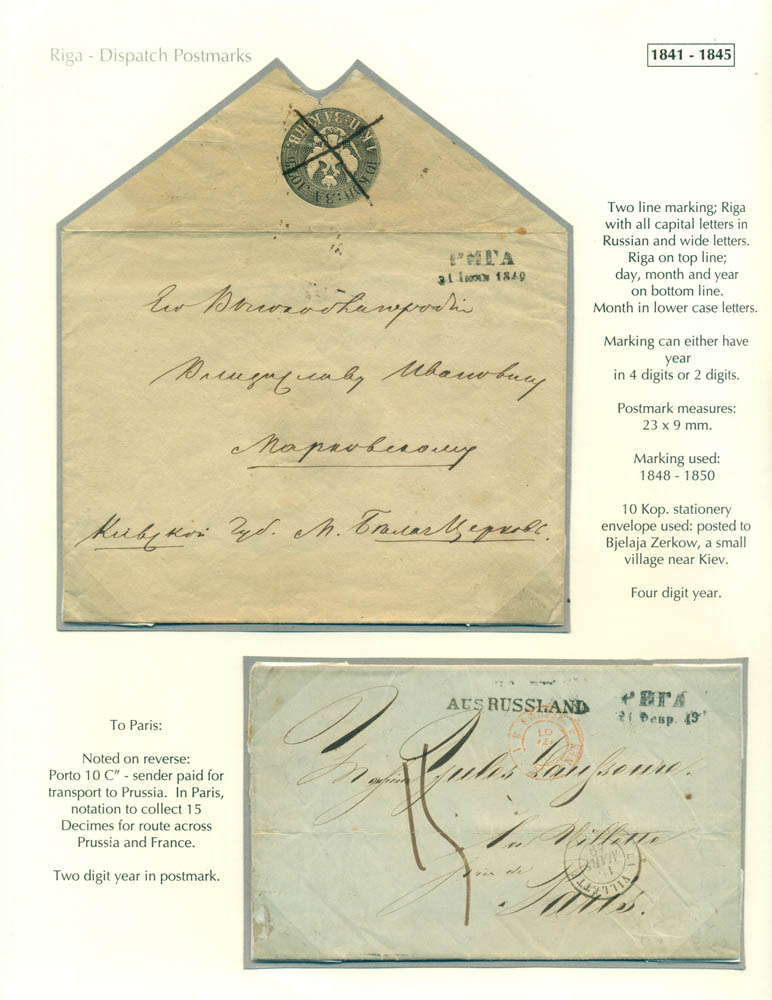 Riga - Dispatch Postmarks
1841 - 1845
РИГА
1849
Его Высокоблагородію
Владиславу Ивановичу
Марковскому
Кіевской Губ. М. Бѣлая Церковь.
Two line marking; Riga
with all capital letters in
Russian and wide letters.
Riga on top line;
day, month and year
on bottom line.
Month in lower case letters.
Marking can either have
year
in 4 digits or 2 digits.
Postmark measures:
23 x 9 mm.
Marking used:
1848 - 1850
10 Kop. stationery
envelope used: posted to
Bjelaja Zerkow, a small
village near Kiev.
Four digit year.
To Paris:
Noted on reverse:
Porto 10 C” - sender paid for
transport to Prussia. In Paris,
notation to collect 15
Decimes for route across
Prussia and France.
Two digit year in postmark.
AUS RUSSLAND
РИГА
21 Февр. 49
15
Monsieur Jules
La Villette
près de
Paris.
LA VILLETTE
MARS